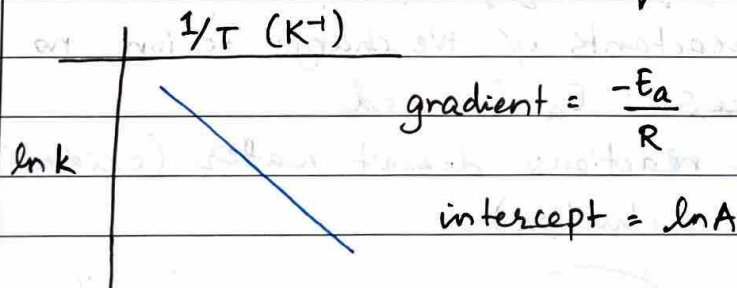 1/T (K⁻¹)
gradient = -Ea/R
ln k
intercept = ln A